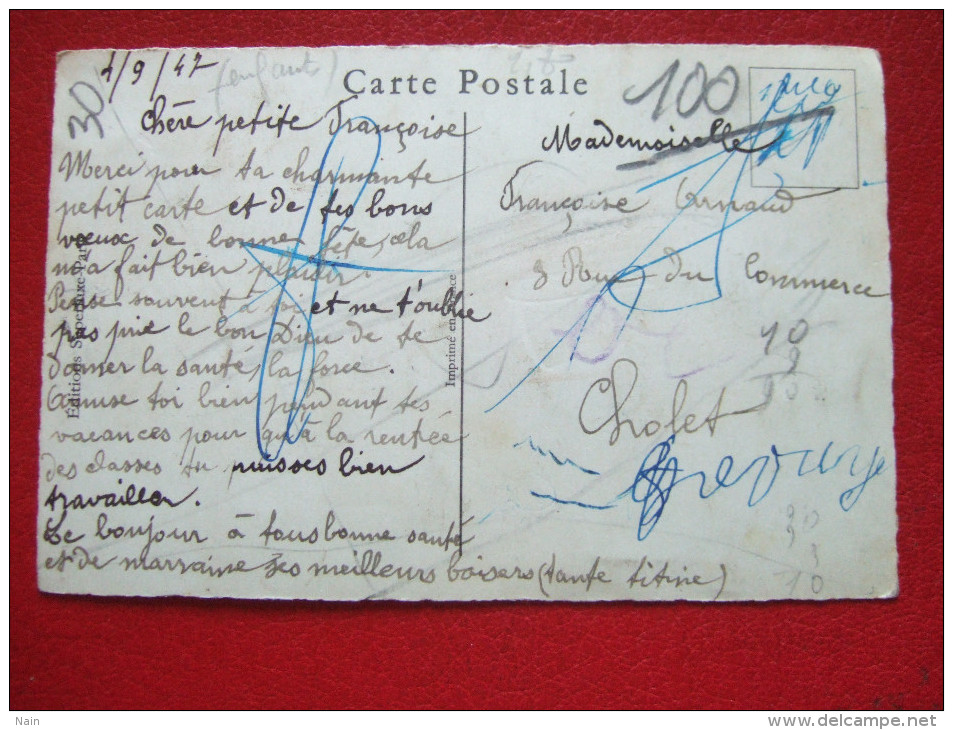 1/9/47
(enfants)
Carte Postale
30
100
chère petite Françoise
Merci pour ta charmante
petit carte et de tes bons
vœux de bonne fête, cela
m'a fait bien plaisir
Pense souvent à toi et ne t'oublie
pas prie le bon Dieu de te
donner la santé, la force.
Amuse toi bien pendant tes
vacances pour qu'à la rentée
des classes tu puisses bien
travailler.
Le bonjour à tous bonne santé
et de marraine ses meilleurs baisers (tante titine)
Mademoiselle
Françoise Arnaud
3 Rue du Commerce
Cholet
Éditions Superluxe Paris
Imprimé en France
10
30
10
Nain
www.delcampe.net